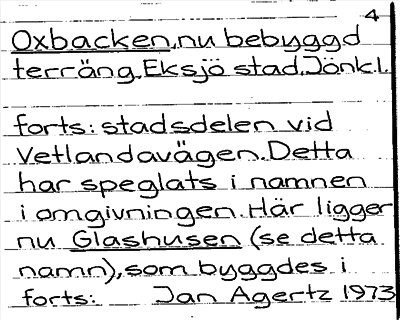 4
Oxbacken, nu bebyggd
terräng, Eksjö stad, Jönk.l.
forts: stadsdelen vid
Vetlandavägen. Detta
har speglats i namnen
i omgivningen. Här ligger
nu Glashusen (se detta
namn), som byggdes i
forts: Jan Agertz 1973